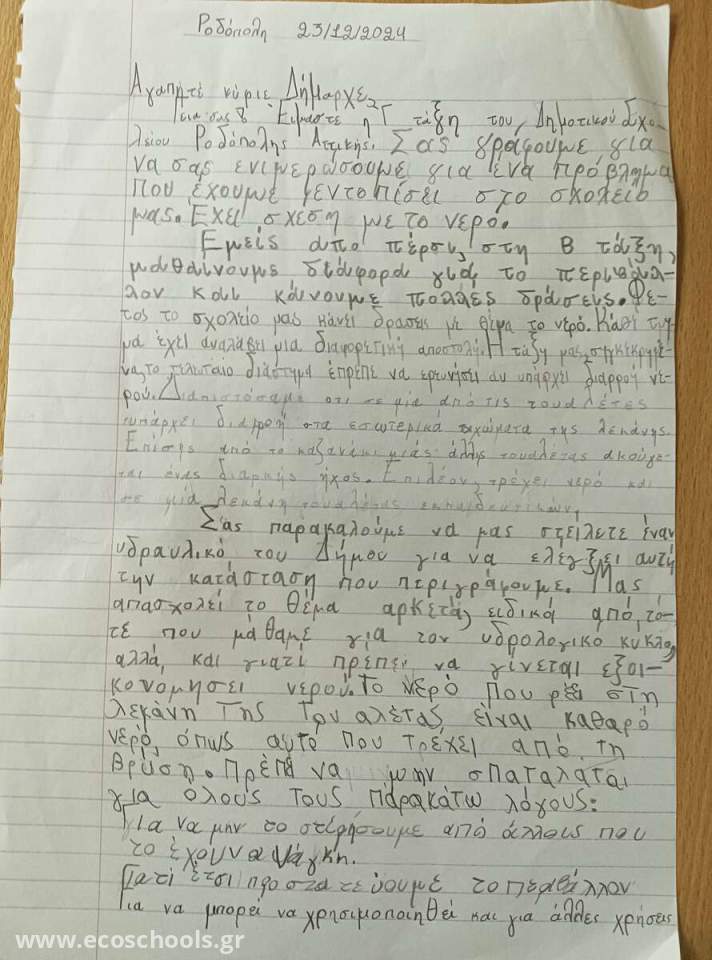 Ροδόπολη 23/12/2024
Αγαπητέ κύριε Δήμαρχε,
Γεια σας! Είμαστε η Γ τάξη του Δημοτικού Σχο-
λείου Ροδόπολης Αττικής. Σας γράφουμε για
να σας ενιμερώσουμε για ένα πρόβλημα
που έχουμε εντοπίσει στο σχολείο
μας. Έχει σχέση με το νερό.
Εμείς από πέρσι, στη Β τάξη,
μαθαίνουμε διάφορα για το περιβάλ-
λον και κάνουμε πολλές δράσεις. Φέ-
τος το σχολείο μας κάνει δράσεις με θέμα το νερό. Κάθε τμή-
μα έχει αναλάβει μια διαφορετική αποστολή. Η τάξη μας, συγκεκριμέ-
να, το τελευταίο διάστημα έπρεπε να ερευνήσει αν υπάρχει διαρροή νε-
ρού. Διαπιστώσαμε ότι σε μία από τις τουαλέτες
υπάρχει διαρροή στα εσωτερικά τοιχώματα της λεκάνης.
Επίσης από το καζανάκι μιάς άλλης τουαλέτας ακούγε-
ται ένας διαρκής ήχος. Επιπλέον, τρέχει νερό και
σε μία λεκάνη τουαλέτας εκπαιδευτικών.
Σας παρακαλούμε να μας στείλετε έναν
υδραυλικό του Δήμου για να ελέγξει αυτή
την κατάσταση που περιγράφουμε. Μας
απασχολεί το θέμα αρκετά, ειδικά από τό-
τε που μάθαμε για τον υδρολογικό κύκλο,
αλλά και γιατί πρέπει να γίνεται εξοι-
κονόμηση νερού. Το νερό που ρέει στη
λεκάνη της τουαλέτας είναι καθαρό
νερό, όπως αυτό που τρέχει από τη
βρύση. Πρέπει να μην σπαταλάται
για όλους τους παρακάτω λόγους:
Για να μην το στερήσουμε από άλλους που
το έχουν ανάγκη.
Γιατί έτσι προστατεύουμε το περιβάλλον
Για να μπορεί να χρησιμοποιηθεί και για άλλες χρήσεις
www.ecoschools.gr